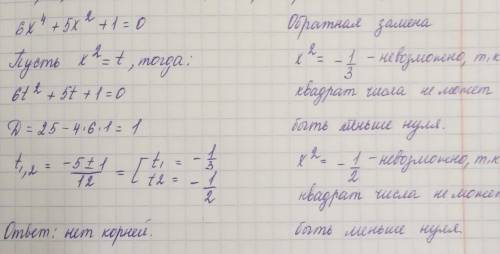 6x⁴ + 5x² + 1 = 0
Пусть x² = t, тогда:
6t² + 5t + 1 = 0
D = 25 - 4·6·1 = 1
t₁,₂ = (-5±1)/12 = [t₁ = -1/3
t2 = -1/2
Ответ: нет корней.
Обратная замена
x² = -1/3 - невозможно, т.к
квадрат числа не может
быть меньше нуля.
x² = -1/2 - невозможно, т.к
квадрат числа не может
быть меньше нуля.